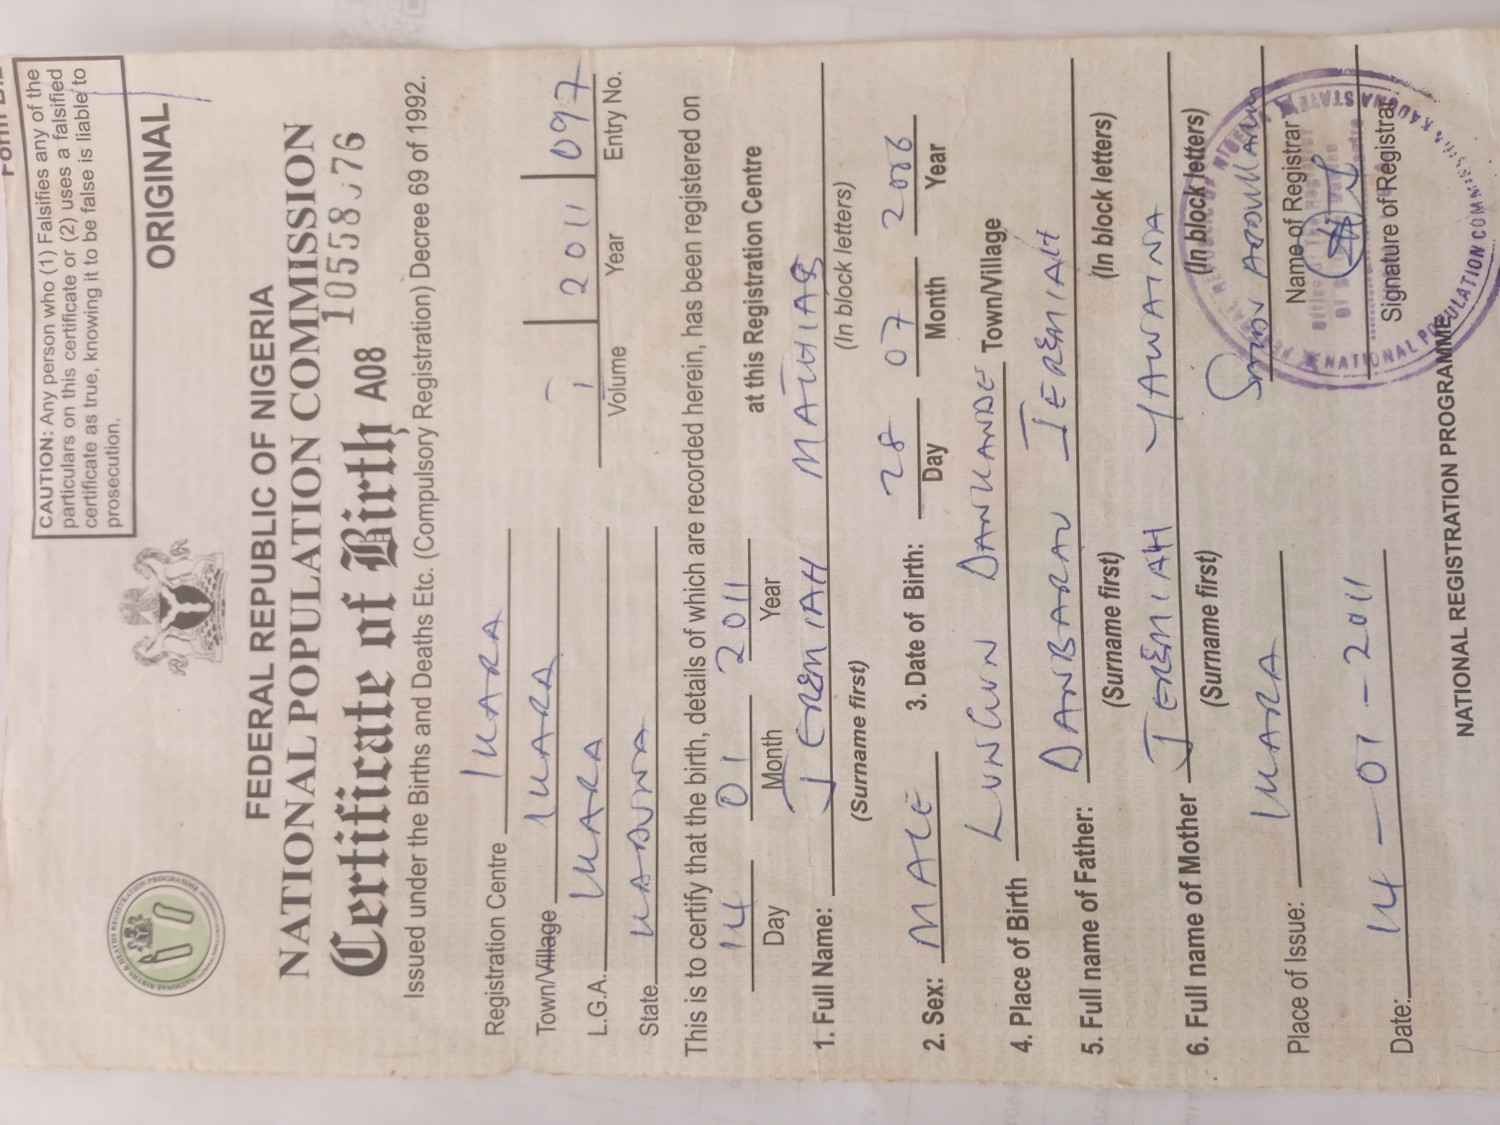 CAUTION: Any person who (1) Falsifies any of the
particulars on this certificate or (2) uses a falsified
certificate as true, knowing it to be false is liable to
prosecution.
ORIGINAL
FEDERAL REPUBLIC OF NIGERIA
NATIONAL POPULATION COMMISSION
Certificate of Birth A08
Issued under the Births and Deaths Etc. (Compulsory Registration) Decree 69 of 1992.
Registration Centre IKARA
Town/Village IKARA 1 2011 097
Volume Year Entry No.
L.G.A. IKARA
State KADUNA
This is to certify that the birth, details of which are recorded herein, has been registered on
14 01 2011 at this Registration Centre
Day Month Year
1. Full Name: JEREMIAH MATHIAS
(Surname first) (In block letters)
2. Sex: MALE 3. Date of Birth: 28 07 2006
Day Month Year
4. Place of Birth DANKANDE Town/Village
5. Full name of Father: JEREMIAH
(Surname first) (In block letters)
6. Full name of Mother JEREMIAH
(Surname first) (In block letters)
Name of Registrar
Place of Issue: IKARA
Signature of Registrar
Date: 14-01-2011
NATIONAL POPULATION COMMISSION
NATIONAL REGISTRATION PROGRAMME